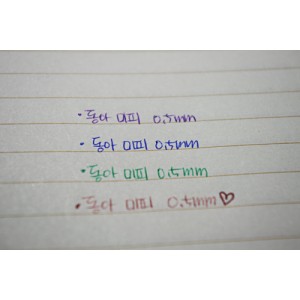 ·동아 미피 0.5mm
·동아 미피 0.5mm
·동아 미피 0.5mm
·동아 미피 0.5mm♡